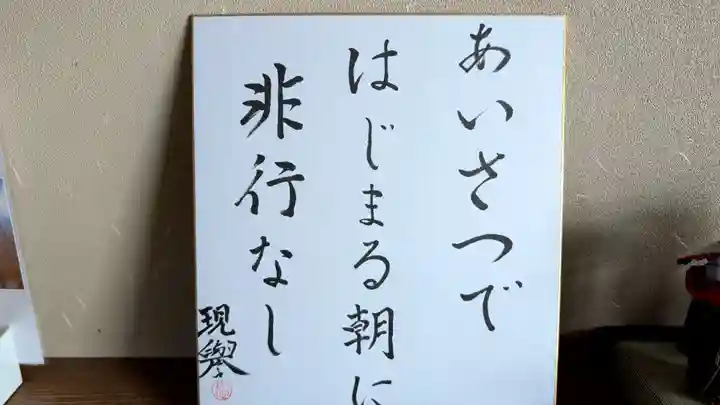 あいさつで
はじまる朝に
非行なし
現譽